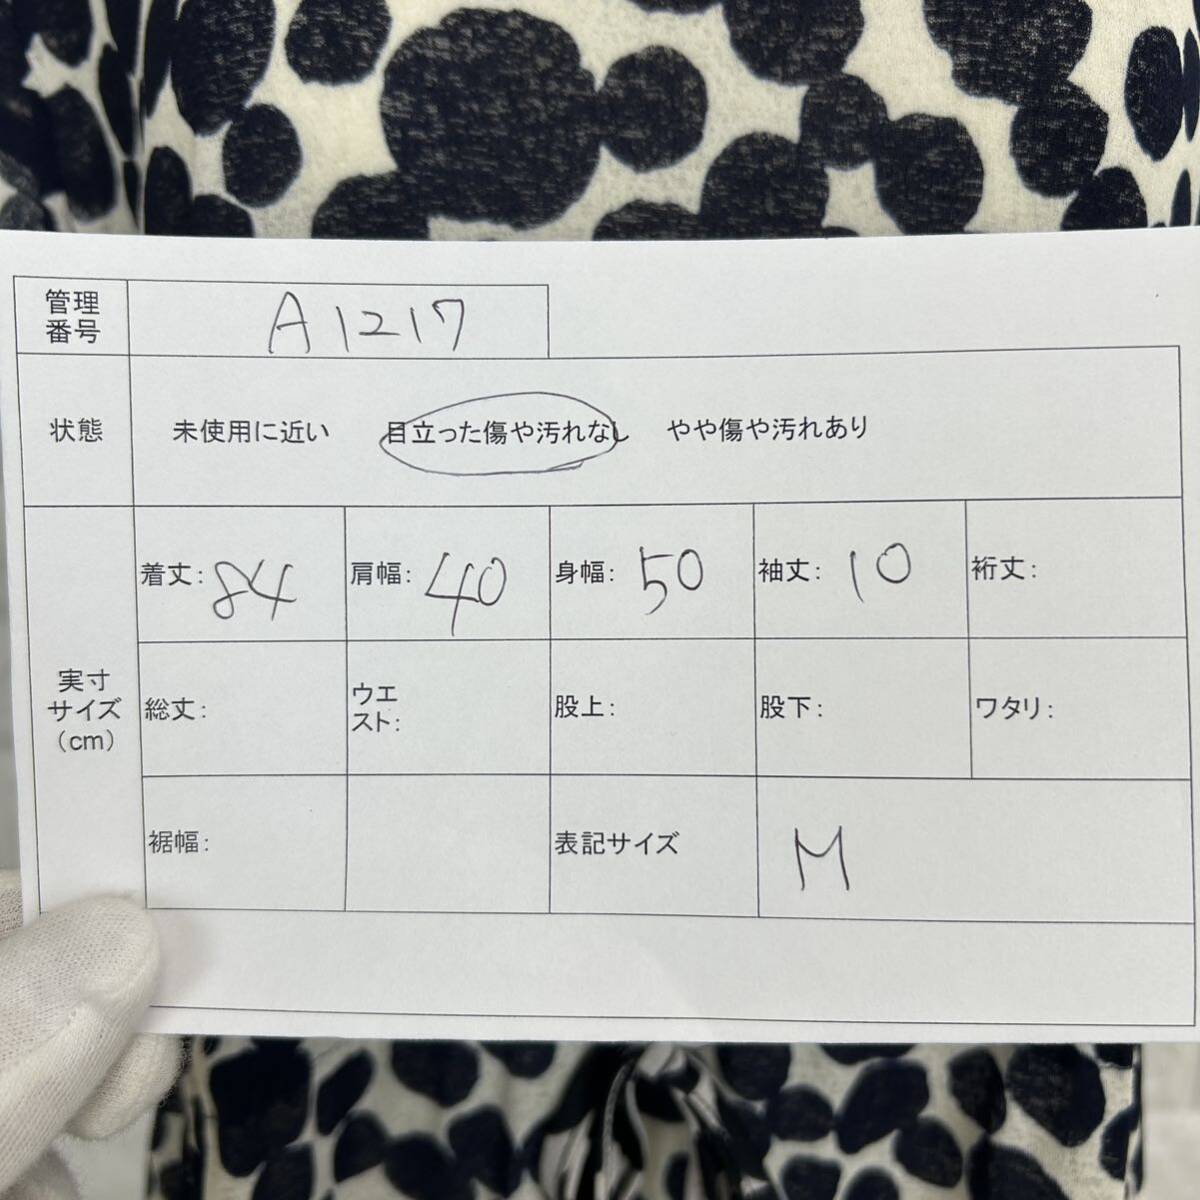 管理
番号
A1217
状態
未使用に近い 目立った傷や汚れなし やや傷や汚れあり
実寸
サイズ
（cm）
着丈: 84 肩幅: 40 身幅: 50 袖丈: 10 裄丈:
総丈: ウエ
スト: 股上: 股下: ワタリ:
裾幅: 表記サイズ M